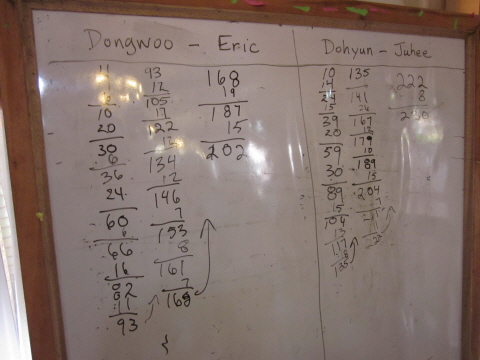 Dongwoo - Eric
11
10
20
30
6
36
24
60
6
66
16
82
11
93
93
12
105
17
122
12
134
12
146
7
153
8
161
7
168
168
19
187
15
202
Dohyun - Juhee
10
14
24
15
39
20
59
30
89
15
104
13
117
135
135
141
26
167
179
10
189
15
204
222
8
230